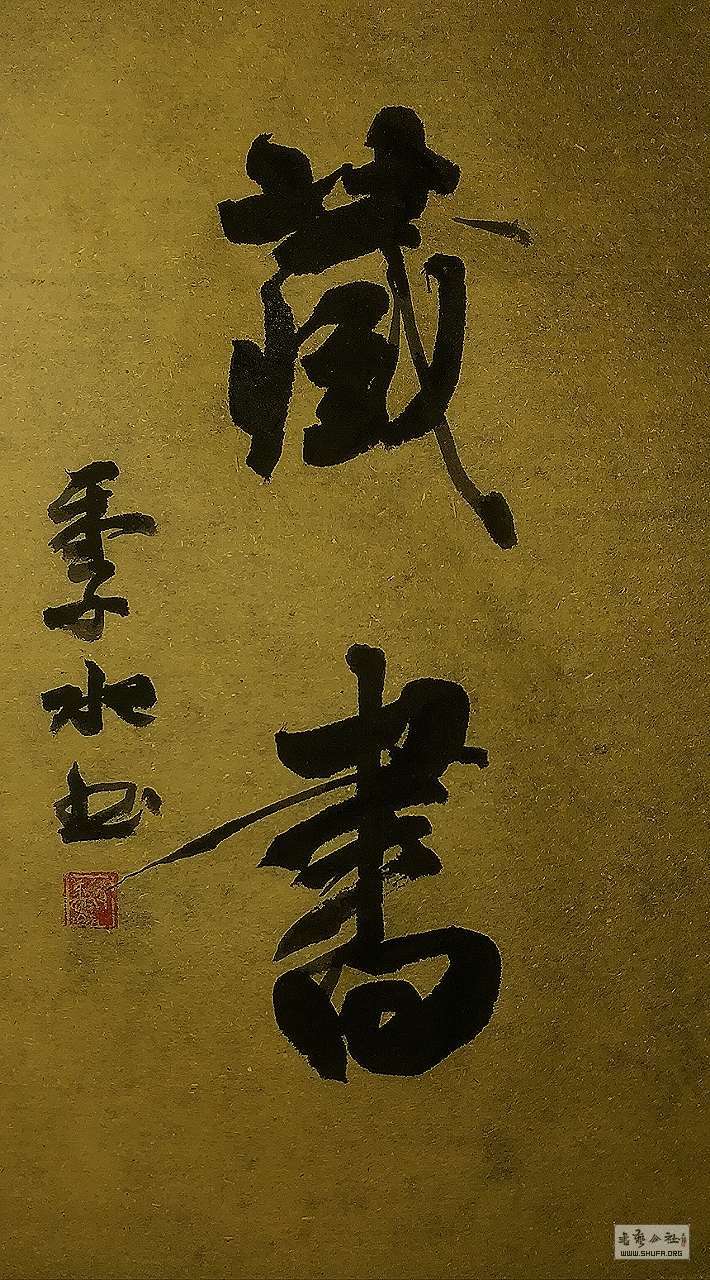 藏書
季水书
书艺公社
WWW.SHUFA.ORG